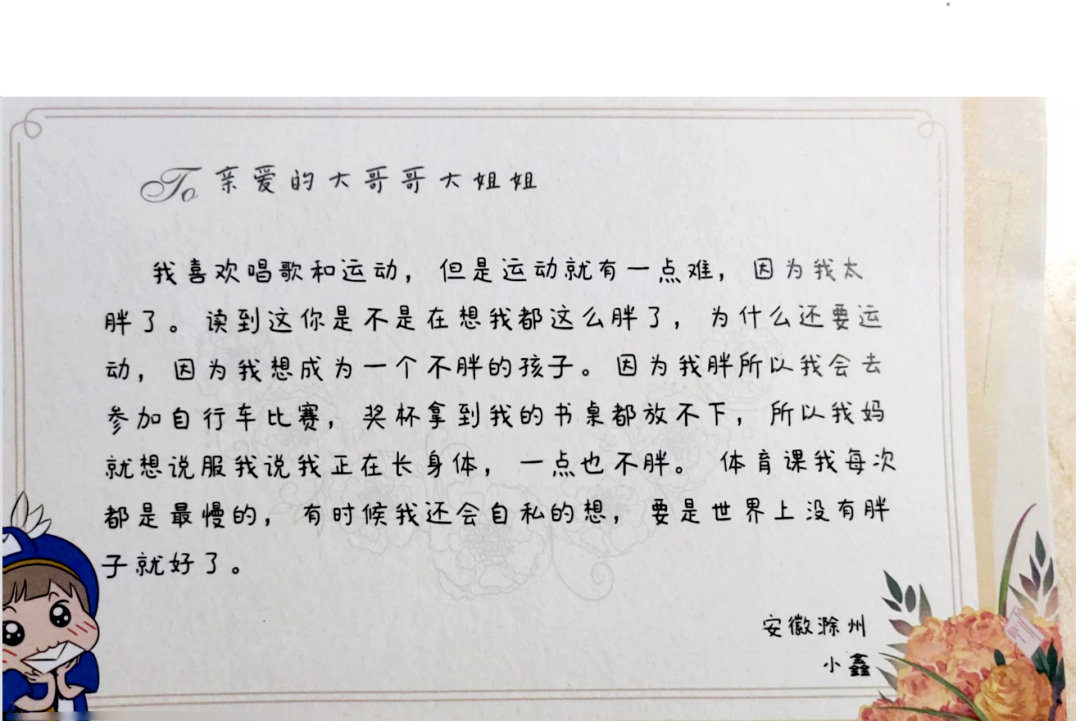 To 亲爱的大哥哥大姐姐
我喜欢唱歌和运动，但是运动就有一点难，因为我太
胖了。读到这你是不是在想我都这么胖了，为什么还要运
动，因为我想成为一个不胖的孩子。因为我胖所以我会去
参加自行车比赛，奖杯拿到我的书桌都放不下，所以我妈
就想说服我说我正在长身体，一点也不胖。体育课我每次
都是最慢的，有时候我还会自私的想，要是世界上没有胖
子就好了。
安徽滁州
小鑫